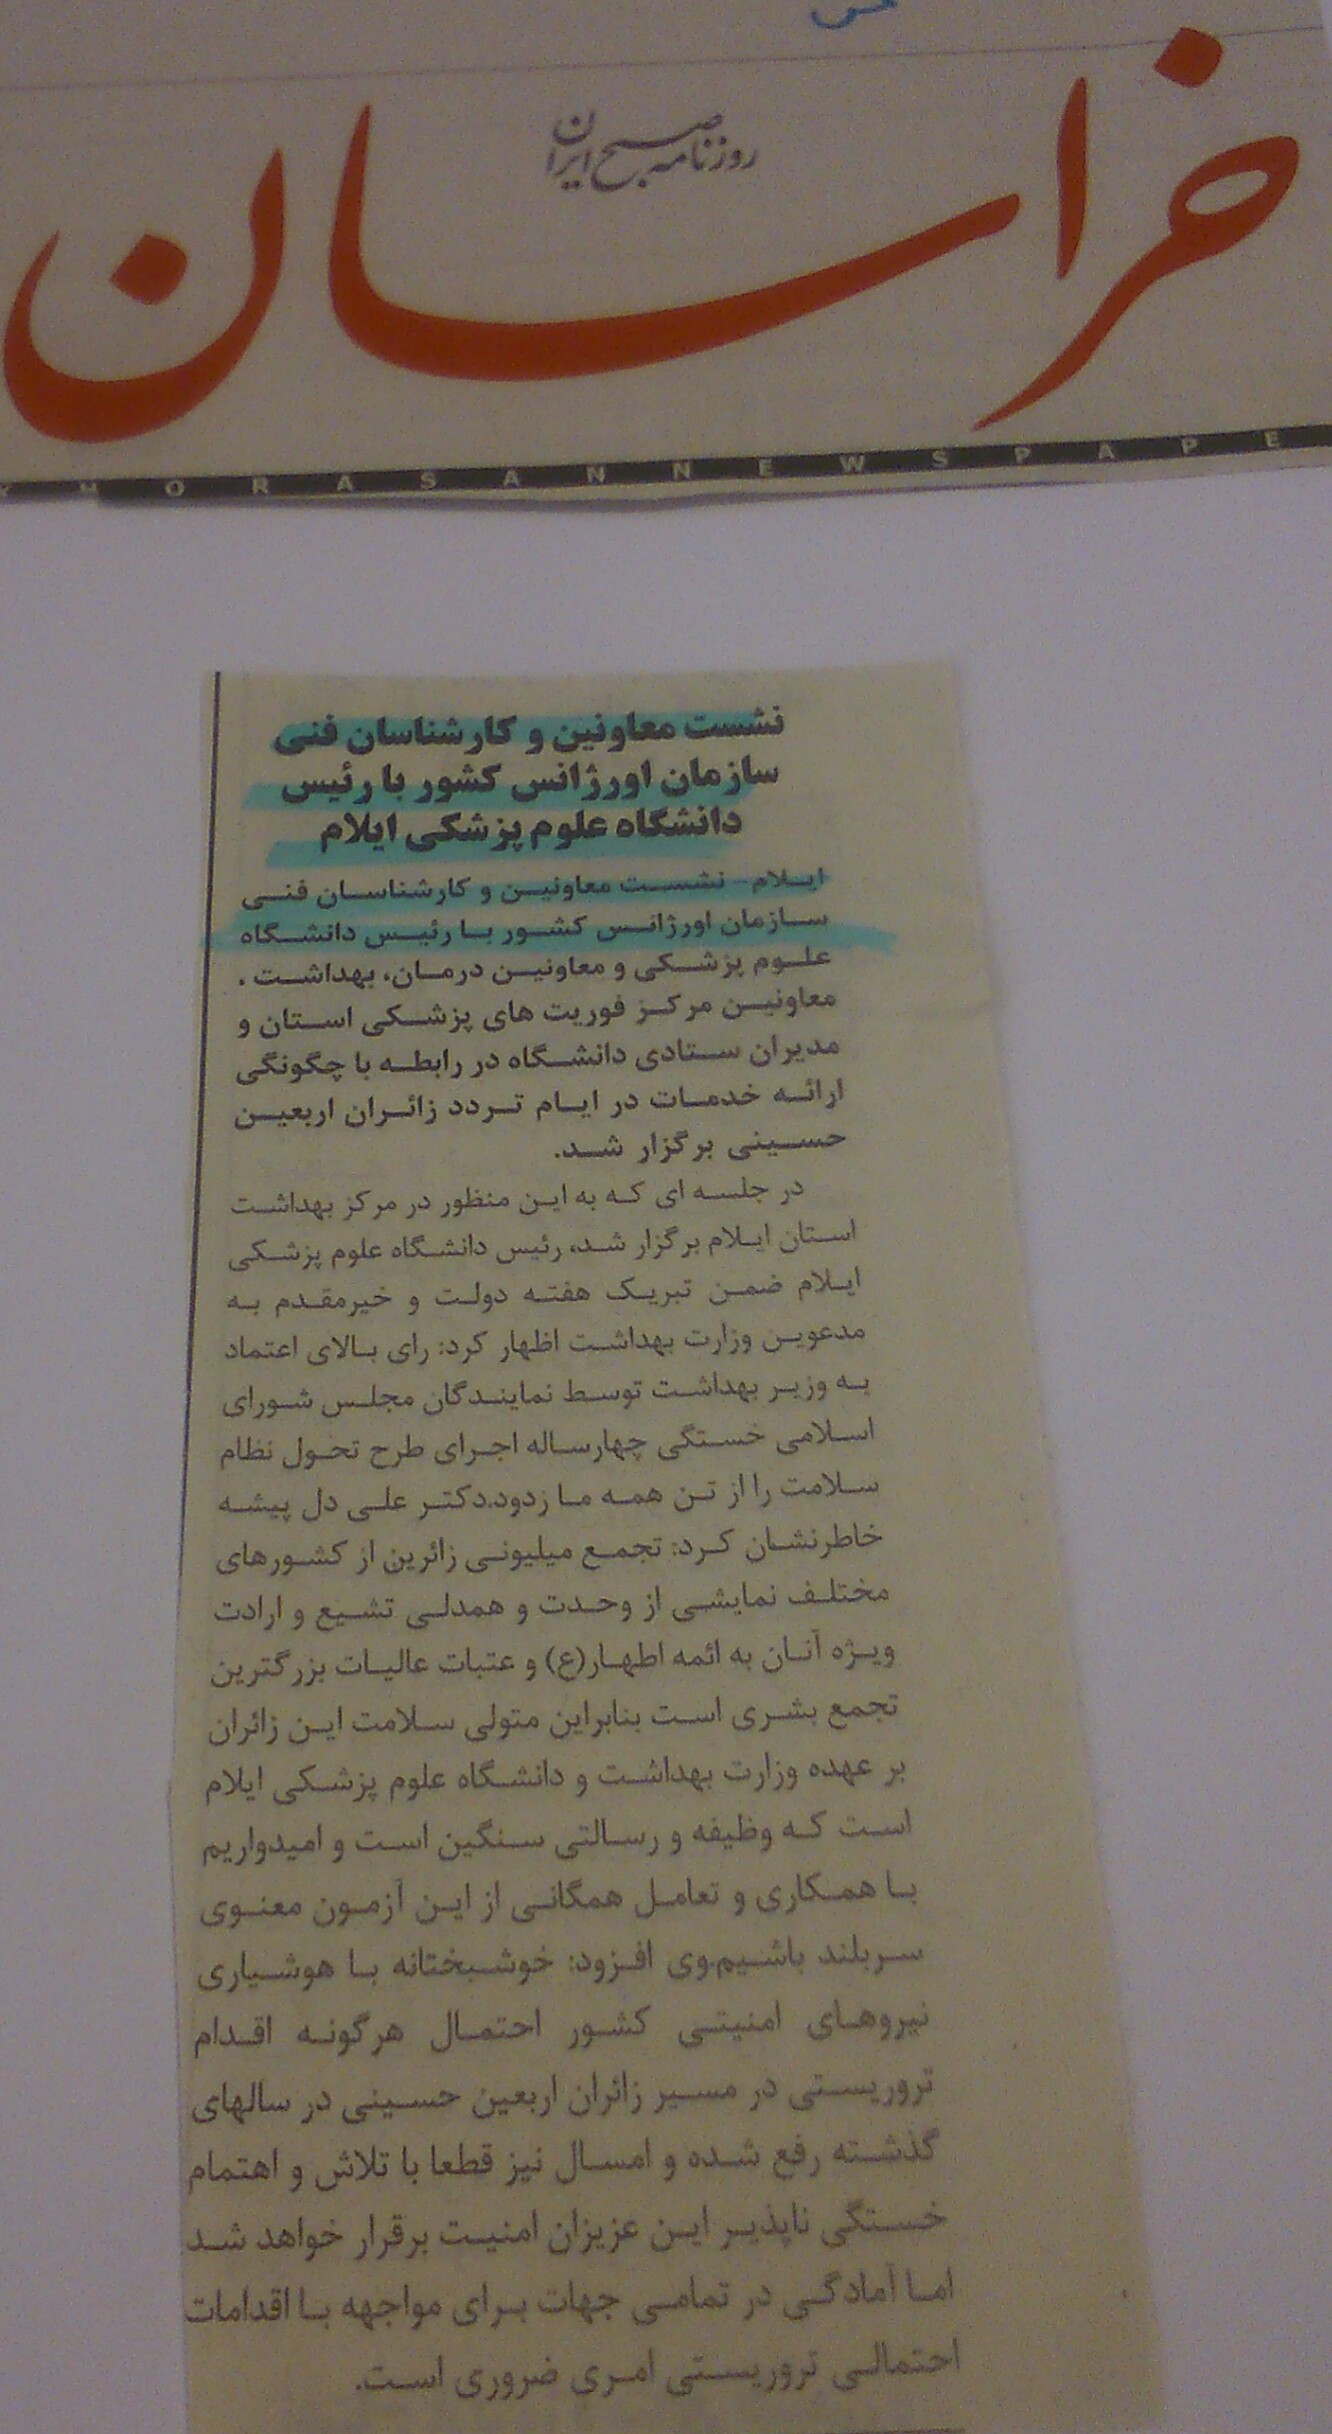 خراسان
روزنامه صبح ایران
KHORASAN NEWSPAPE
نشست معاونین و کارشناسان فنی
سازمان اورژانس کشور با رئیس
دانشگاه علوم پزشکی ایلام
ایلام- نشست معاونین و کارشناسان فنی
سازمان اورژانس کشور با رئیس دانشگاه
علوم پزشکی و معاونین درمان، بهداشت .
معاونین مرکز فوریت های پزشکی استان و
مدیران ستادی دانشگاه در رابطه با چگونگی
ارائه خدمات در ایام تردد زائران اربعین
حسینی برگزار شد.
در جلسه ای که به این منظور در مرکز بهداشت
استان ایلام برگزار شد، رئیس دانشگاه علوم پزشکی
ایلام ضمن تبریک هفته دولت و خیرمقدم به
مدعوین وزارت بهداشت اظهار کرد: رای بالای اعتماد
به وزیر بهداشت توسط نمایندگان مجلس شورای
اسلامی خستگی چهارساله اجرای طرح تحول نظام
سلامت را از تن همه ما زدود.دکتر علی دل پیشه
خاطرنشان کرد: تجمع میلیونی زائرین از کشورهای
مختلف نمایشی از وحدت و همدلی تشیع و ارادت
ویژه آنان به ائمه اطهار(ع) و عتبات عالیات بزرگترین
تجمع بشری است بنابراین متولی سلامت این زائران
بر عهده وزارت بهداشت و دانشگاه علوم پزشکی ایلام
است که وظیفه و رسالتی سنگین است و امیدواریم
با همکاری و تعامل همگانی از این آزمون معنوی
سربلند باشیم.وی افزود: خوشبختانه با هوشیاری
نیروهای امنیتی کشور احتمال هرگونه اقدام
تروریستی در مسیر زائران اربعین حسینی در سالهای
گذشته رفع شده و امسال نیز قطعا با تلاش و اهتمام
خستگی ناپذیر این عزیزان امنیت برقرار خواهد شد
اما آمادگی در تمامی جهات برای مواجهه با اقدامات
احتمالی تروریستی امری ضروری است.